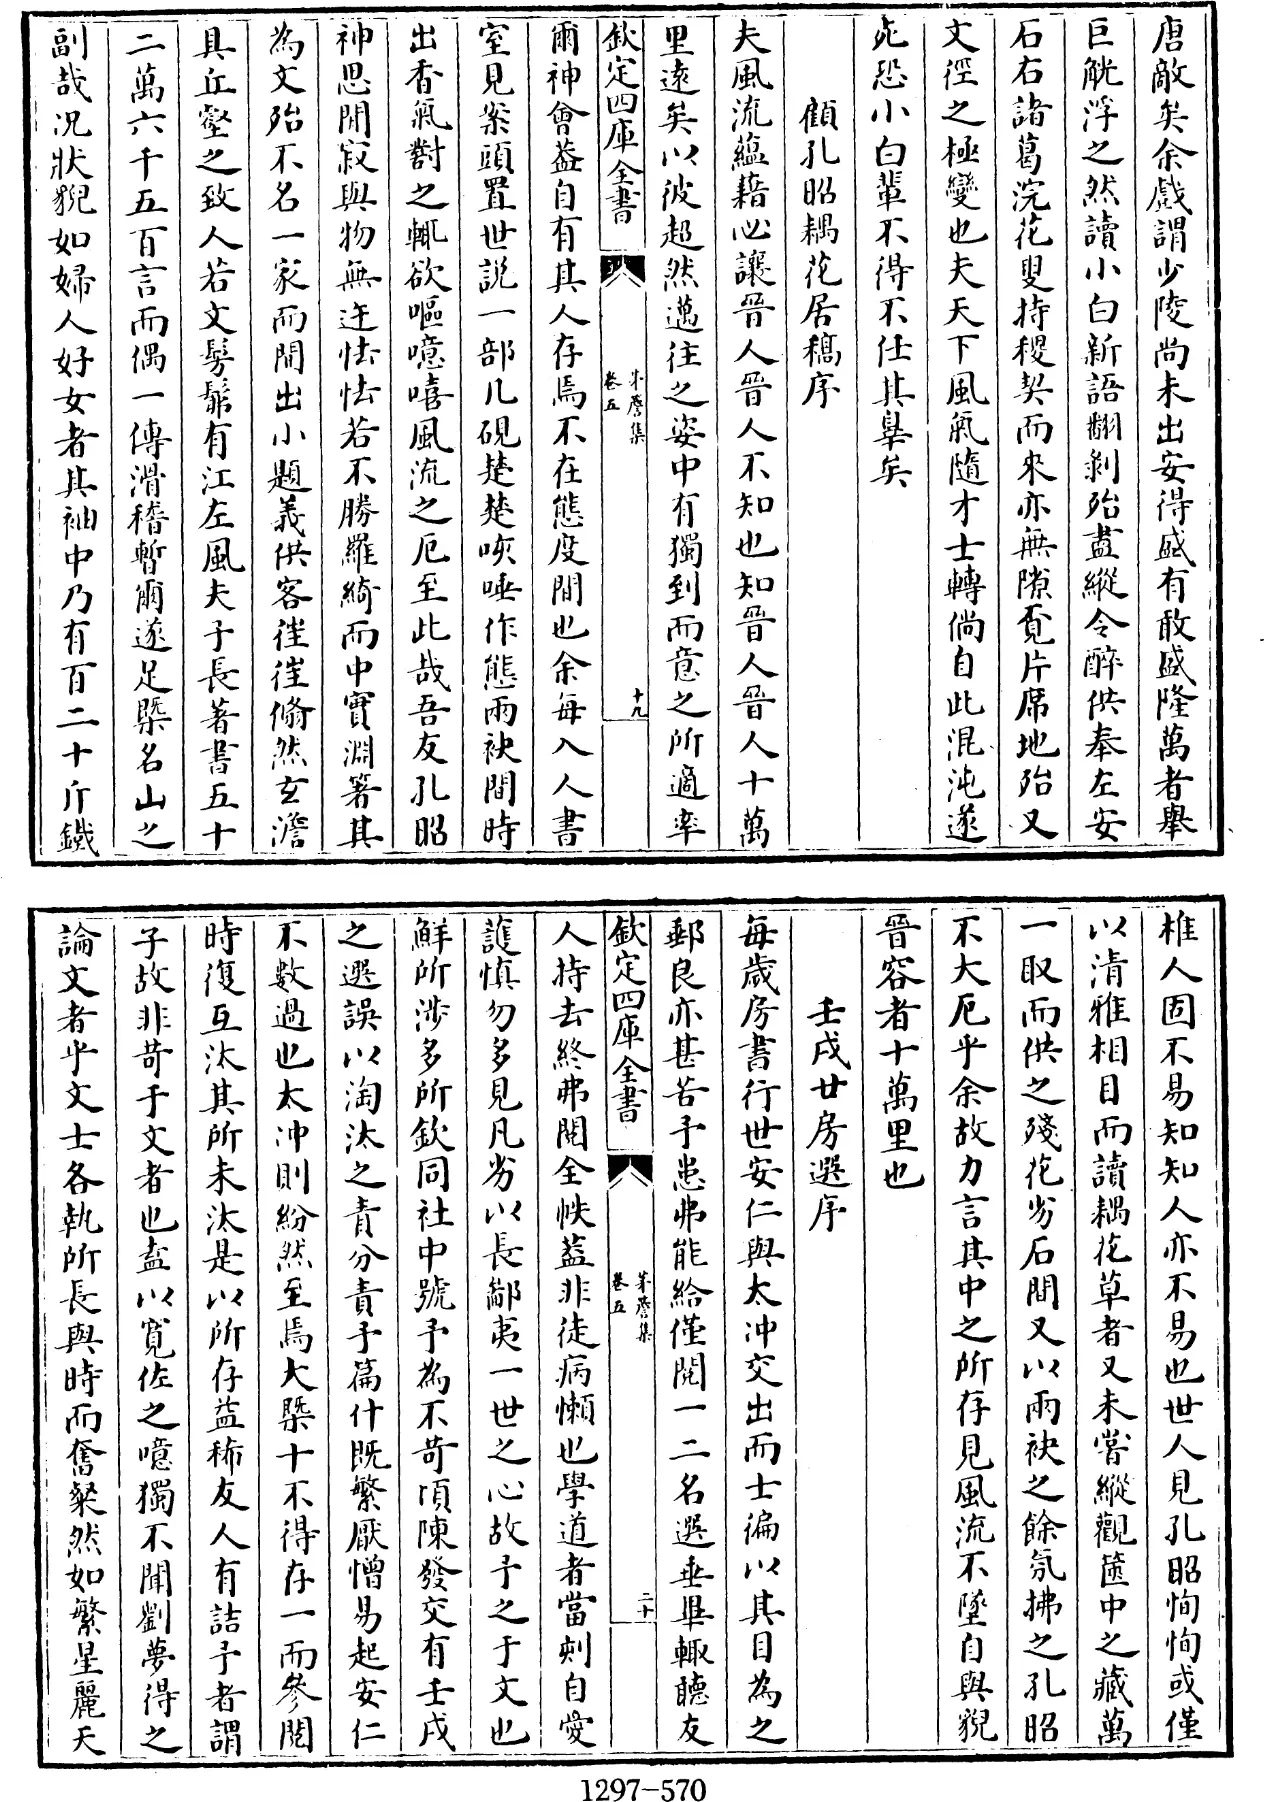 唐敵矣余戲謂少陵尚未出安得盛有敢盛隆萬者舉
巨觥浮之然讀小白新語翻剝殆盡縱令醉供奉左安
石右諸葛浣花叟持稷契而來亦無隙覔片席地殆又
文徑之極變也夫天下風氣隨才士轉倘自此混沌遂
死恐小白輩不得不任其辠矣
顧孔昭耦花居稿序
夫風流蘊藉必讓晉人晉人不知也知晉人晉人十萬
里遠矣以彼超然邁往之姿中有獨到而意之所適率
欽定四庫全書
茅簷集
卷五
十九
爾神會葢自有其人存焉不在態度間也余每入人書
室見案頭置世説一部几硯楚楚咳唾作態兩袂間時
出香氣對之輒欲嘔噫嘻風流之厄至此哉吾友孔昭
神思閒寂與物無迕怯怯若不勝羅綺而中實淵箸其
為文殆不名一家而間出小題義供客徃徃翛然玄澹
具丘壑之致人若文髣髴有江左風夫子長著書五十
二萬六千五百言而偶一傳滑稽暫爾遂足槩名山之
副哉况狀猊如婦人好女者其袖中乃有百二十斤鐵
椎人固不易知知人亦不易也世人見孔昭恂恂或僅
以清雅相目而讀耦花草者又未嘗縱觀篋中之藏萬
一取而供之殘花劣石間又以兩袂之餘氛拂之孔昭
不大厄乎余故力言其中之所存見風流不墜自與猊
晉容者十萬里也
壬戌廿房選序
每歲房書行世安仁與太冲交出而士徧以其目為之
郵良亦甚苦予患弗能給僅閱一二名選垂畢輙聽友
欽定四庫全書
茅簷集
卷五
二十
人持去終弗閱全帙葢非徒病懶也學道者當刺自愛
護慎勿多見凡劣以長鄙夷一世之心故予之于文也
鮮所涉多所欽同社中號予為不苛頃陳發交有壬戌
之選誤以淘汰之責分責予篇什既繁厭憎易起安仁
不數過也太冲則紛然至焉大槩十不得存一而參閱
時復互汰其所未汰是以所存益稀友人有詰予者謂
子故非苛于文者也盍以寛佐之噫獨不聞劉夢得之
論文者乎文士各執所長與時而奮粲然如繁星麗天
1297-570